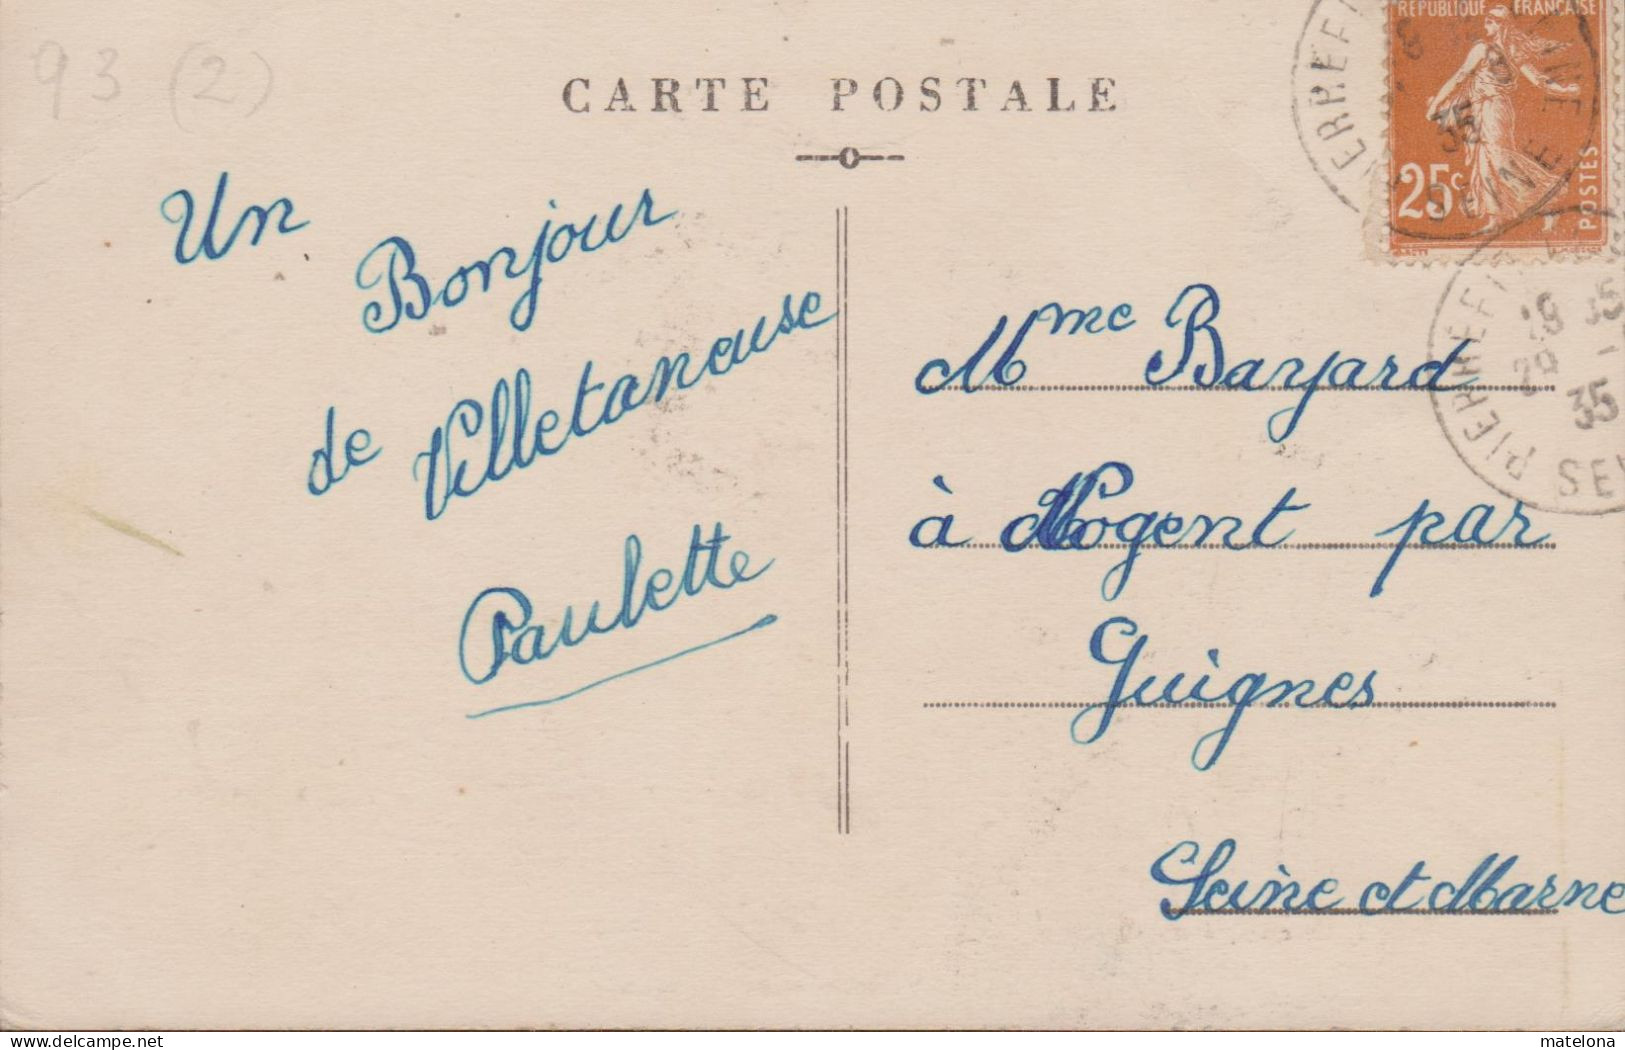 93 (2)
CARTE POSTALE
RÉPUBLIQUE FRANÇAISE
25c
POSTES
35
SEINE
PIERREFI
18 35
29 -
35
SEI
Un
Bonjour
de Villetaneuse
Paulette
Mme Bayard
à Nogent par
Guignes
Seine et Marne
delcampe.net
matelona